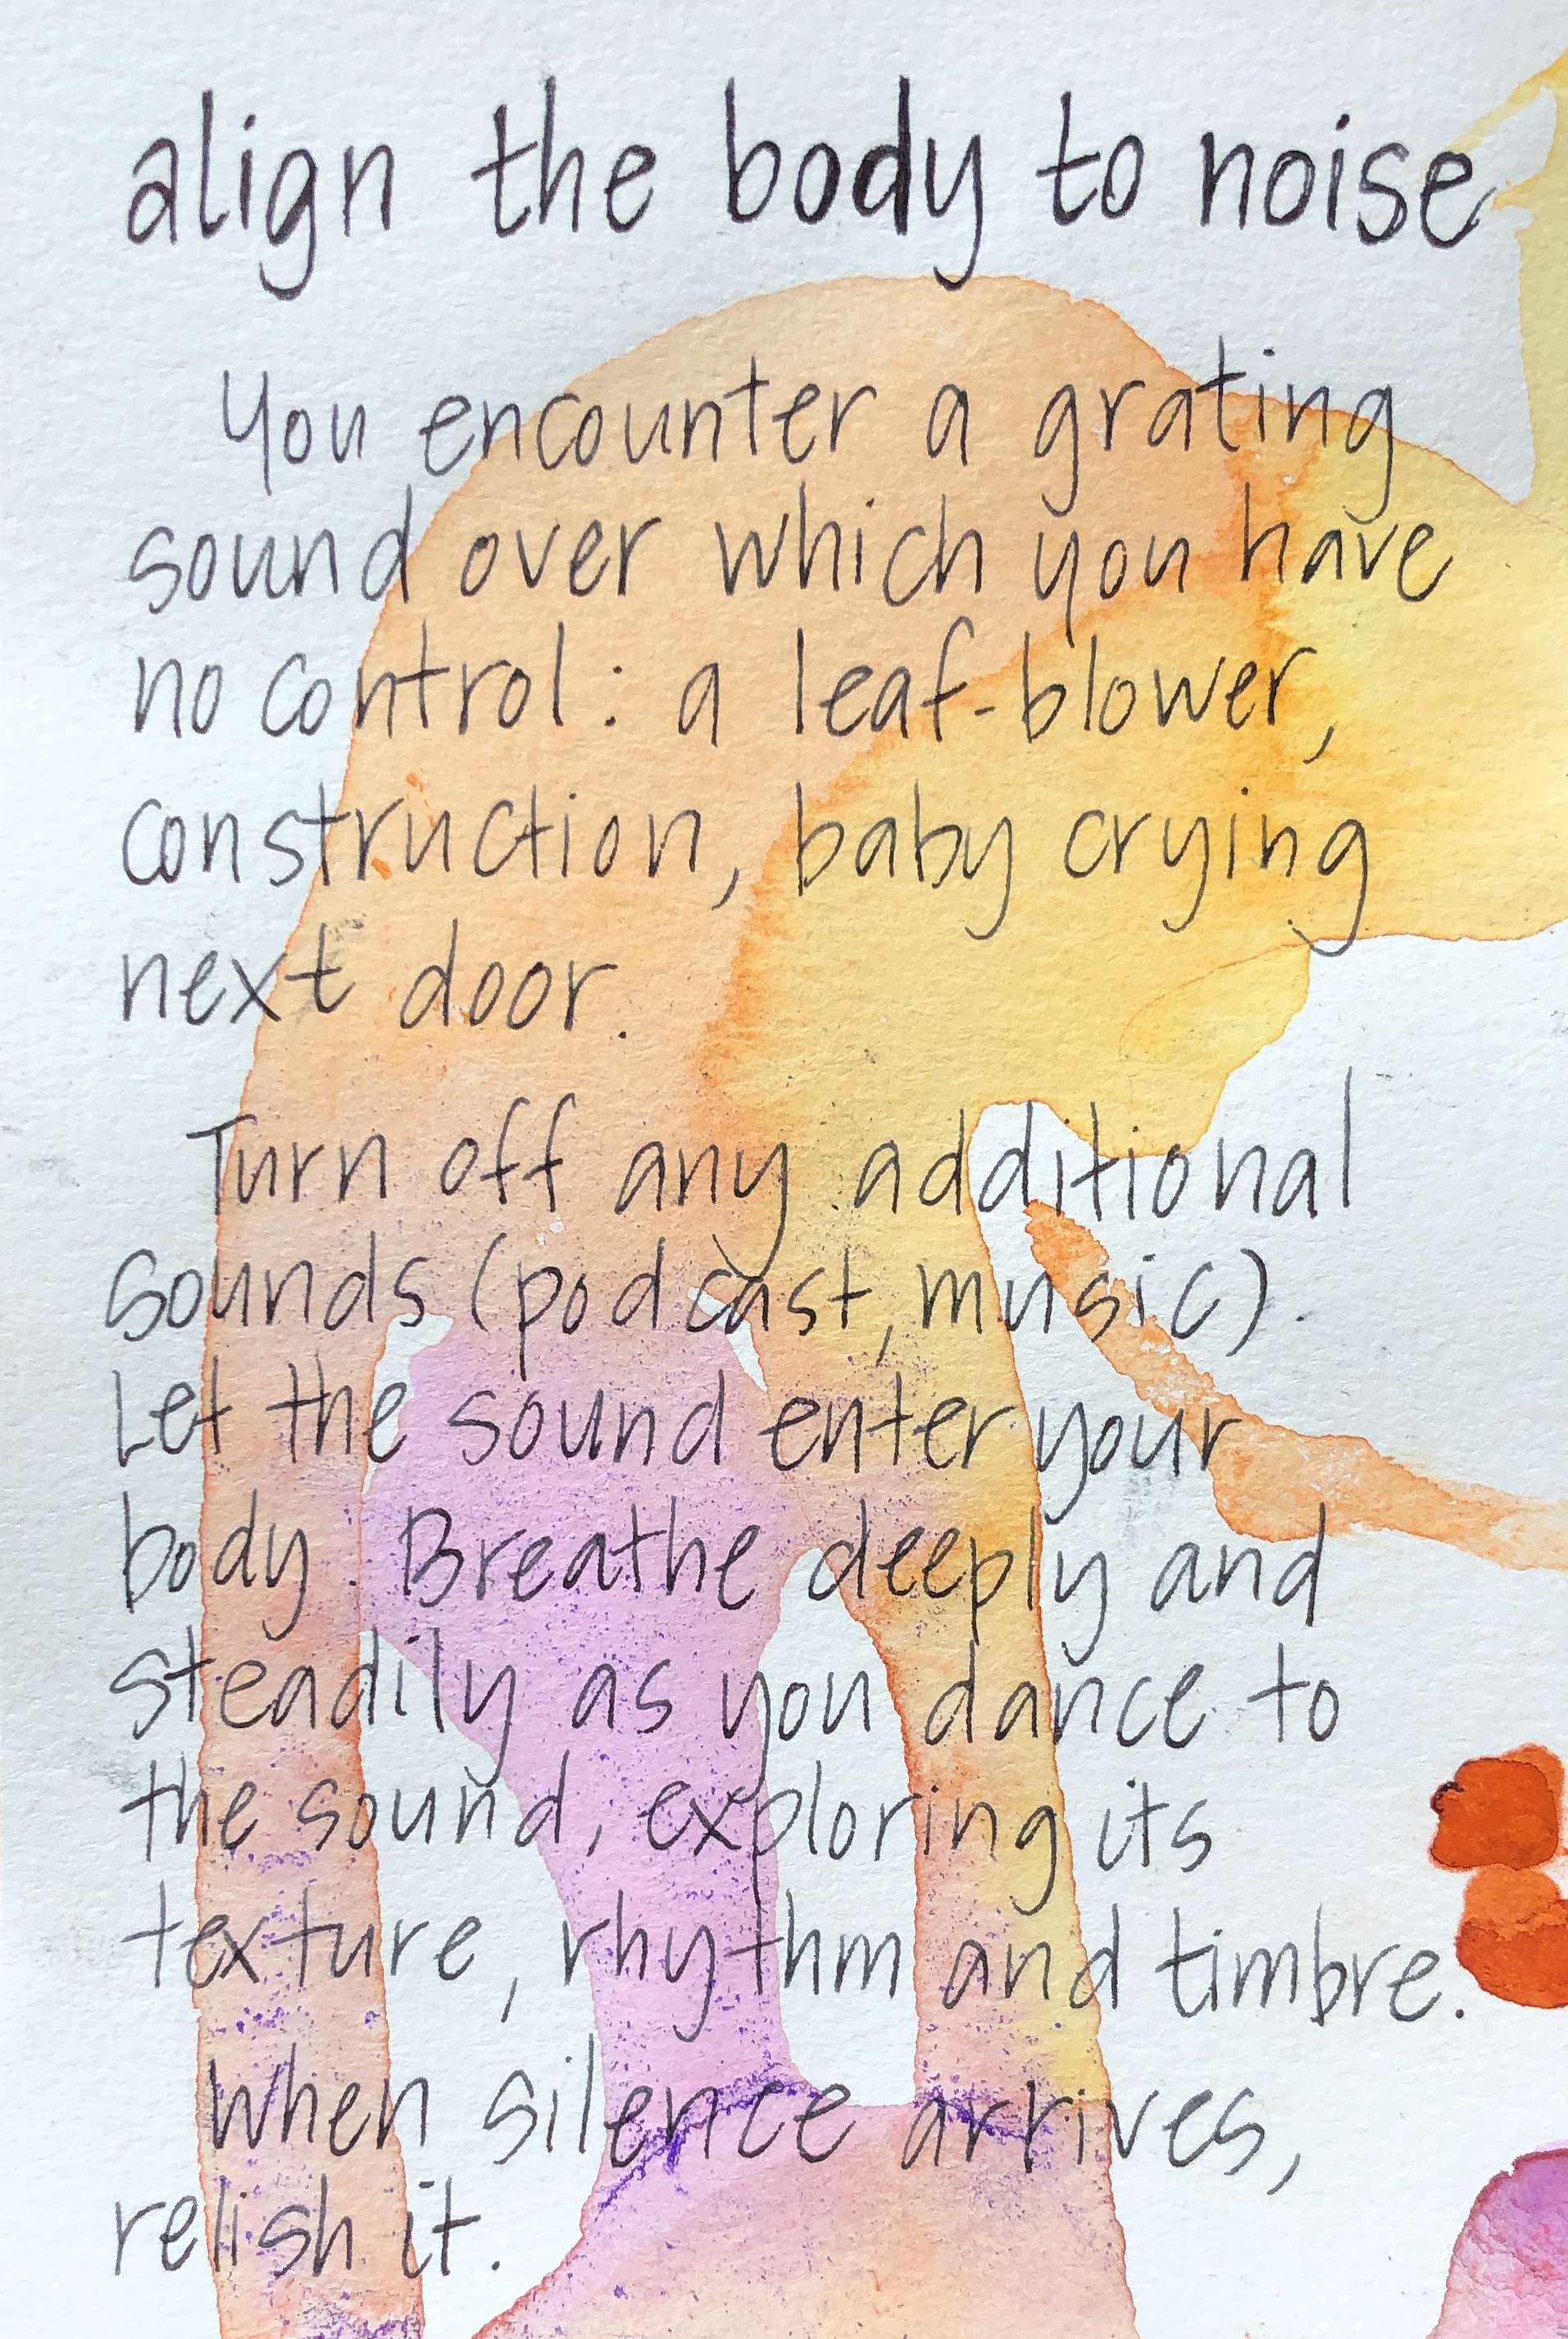 align the body to noise
You encounter a grating
sound over which you have
no control: a leaf-blower,
construction, baby crying
next door.
Turn off any additional
sounds (podcast, music).
Let the sound enter your
body. Breathe deeply and
steadily as you dance to
the sound, exploring its
texture, rhythm and timbre.
When silence arrives,
relish it.